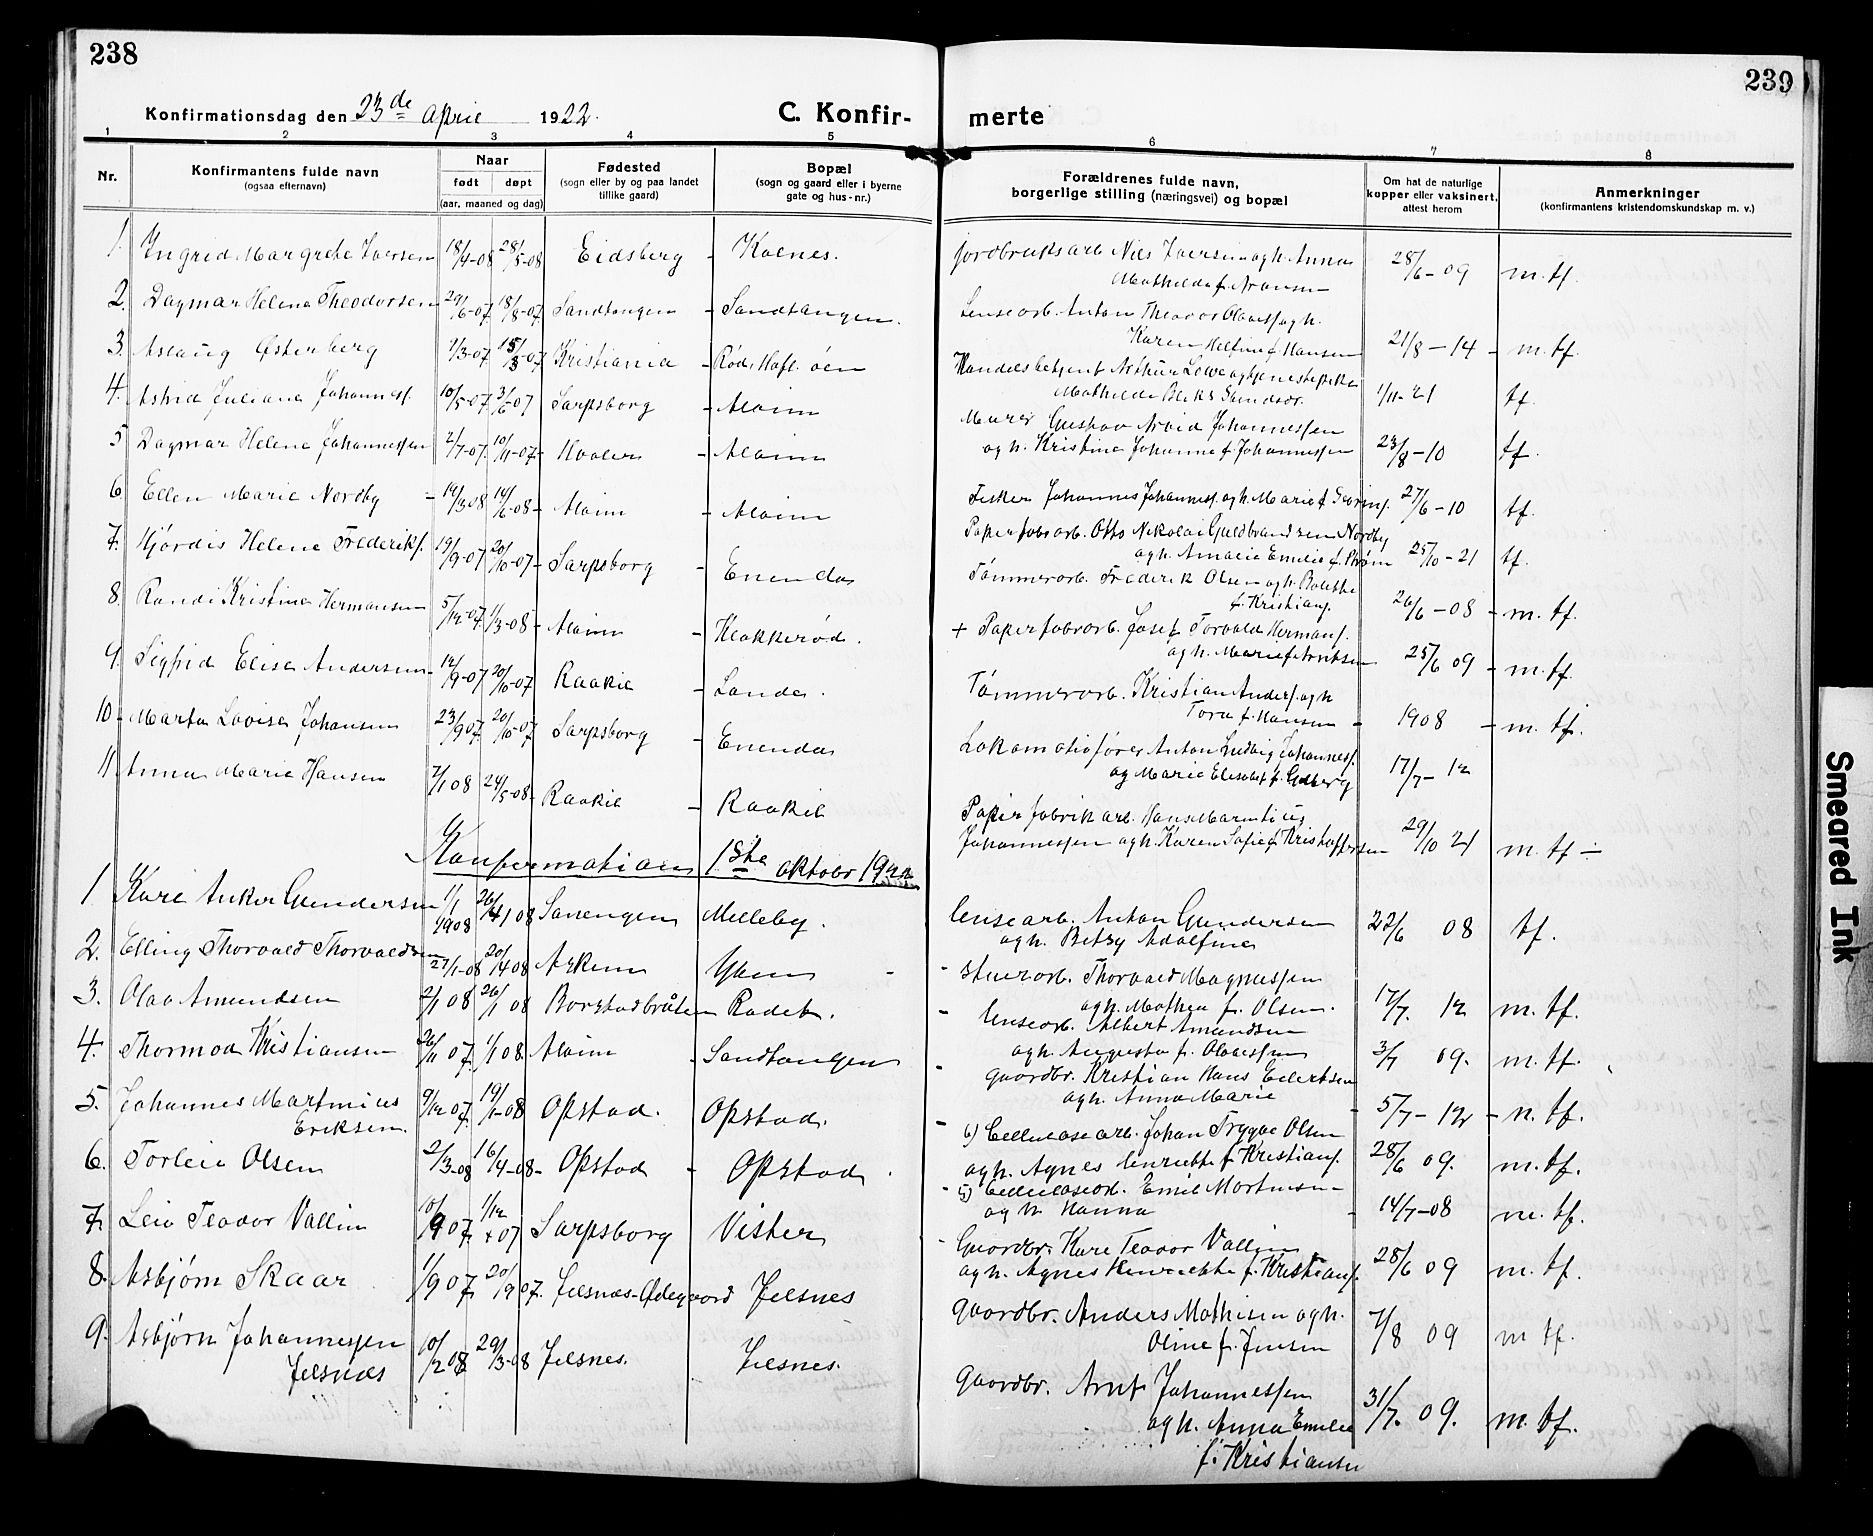 238
239
Konfirmationsdag den 23de April 1922.
C. Konfir-
merte
1 2 3 4 5 6 7 8
Nr.
Konfirmantens fulde navn
(ogsaa efternavn)
Naar
født døpt
(aar, maaned og dag)
Fødested
(sogn eller by og paa landet
tillike gaard)
Bopæl
(sogn og gaard eller i byerne
gate og hus-nr.)
Forældrenes fulde navn,
borgerlige stilling (næringsvei) og bopæl
Om hat de naturlige
kopper eller vaksinert,
attest herom
Anmerkninger
(konfirmantens kristendomskundskap m. v.)
1. Ingrid Margrete Iversen 18/4-08 28/5-08 Eidsberg - Kolnes.
jordbruksarb. Nils Iversen og h. Anna
Mathilde f. 28/6-09 m. tf.
2. Dagmar Helene Theodorsen 29/6-07. 18/8-07. Sandtangen - Sandtangen.
Lensearb. Anton Theodor Olavss. og h.
Karen f. Hansen 21/8-14 - m. tf.
3. Aslaug Østerberg 7/3-07 Kristiania -
Handelsbetjent Arthur og
Mathilde 1/11-21 tf.
4. Astrid Juliane Johanness. 10/5-07. 3/6-07 Sarpsborg - Alvim
Murer Gustav Arvid Johannessen
og h. Kristine Johanne f. Johannessen 23/8-10 tf.
5 Dagmar Helene Johannessen 2/7-07. 10/11-07- Hvaler - Alvim
Fisker Johannes Johanness. og h. Marie f. 27/6-10 tf.
6 Ellen Marie Nordby - 14/3-08 14/6-08- Alvim - Alvim
Papirfabr.arb. Otto Nikolai Guldbrandsen Nordby
og h. Amalie Emilie f. Strøm 25/10-21 tf.
7. Hjørdis Helene Frederiks. 19/9-07 20/10-07- Sarpsborg - Enenda
Tømmerarb. Frederik Olsen og h. Bolette
f. Kristians. 26/6-08 - m. tf.
8. Randi Kristine Hermansen 5/12-07. 1/3-08- Alvim - Klokkerød.
+ Papirfabrarb. Josef Torvald Hermans.
og h. Marie f. 25/6 09 - m. tf.
9. Sigfrid Elise Andersen 12/9-07 20/10-07 Raakil - Lande.
Tømmerarb. Kristian Anders. og h
Tora f. Hansen - 1908 - m. tf.
10- Marta Lovise Johansen 23/9 07. 20/10-07 Sarpsborg - Enenda
Lokomotivfører Anton Ludvig Johanness.
og Marie Elisabet f. 17/7-12
11 Anna Marie Hansen 7/1 08 24/5-08- Raakil - Raakil
Papirfabrikarb. Hans Marentius
Johannessen og h. Karen Sofie f. Kristoffersen 29/10 21 m. tf -
Konfirmation 1ste oktobr 1922
1 Kåre Anker Gundersen 1/1 1908 26/4 08 Sanengen Melleby.
lensearb. Anton Gundersen
og h. Betzy Adolfine 22/6 08 tf.
2. Elling Thorvald Thorvaldsen 27/1-08 20/4 08 Askim Yven -
- stuerarb. Thorvald Magnussen
og h. Mathea f. Olsen. 17/7. 12 m. tf.
3. Olav Amundsen 2/1 08 26/1 08 Borstadbråten Radet.
- lensearb. Albert Amundsen
og h. Augusta f. Olavssen 3/7 09. m. tf.
4. Thormod Kristiansen 26/11 07. 1/1 08 Alvim - Sandtangen
- gaardbr. Kristian Hans Edertsen
og h. Anna Marie - 5/7-12 - m. tf.
5. Johannes Martinius
Eriksen. 9/12 07. 19/1-08 Opstad. Opstad.
- 6) Cellulosearb. Johan Trygve Olsen
og h. Agnes Henriette f. Kristians. 28/6 09. m. tf.
6. Torleiv Olsen 2/3-08 16/4-08- Opstad - Opstad.
- 5) Cellulosearb. Emil Martinsen -
og h Hanna - 14/7-08 m. tf.
7. Leiv Teodor Vallin 10/9 07. 1/12 07 Sarpsborg Vister
- Gaardbr. Kåre Teodor Vallin
og h. Agnes Henriette f. Kristians. 28/6 09 m. tf.
8. Asbjørn Skaar 1/9 07. 20/9 07. Jelsnes-Ødegaard Jelsnes
gaardbr. Anders Mathisen og h.
Oline f. Jensen 7/8 09 m tf.
9. Asbjørn Johannessen
Jelsnes 10/2 08 29/3-08 Jelsnes. Jelsnes.
gaardbr. Arnt Johannessen
og h. Anna Emilie
f. Kristiansen 31/7. 09. m. tf.
Smeared Ink